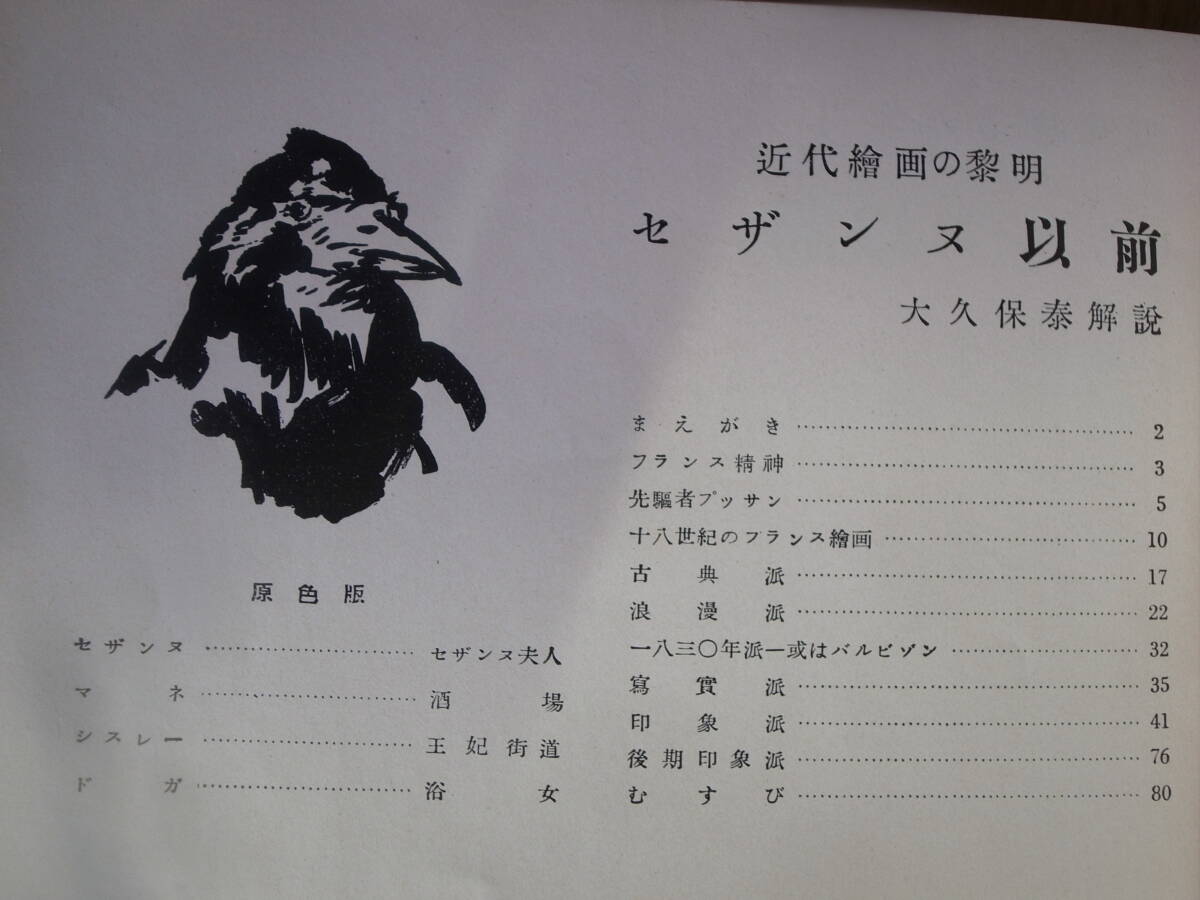 近代繪画の黎明
セザンヌ以前
大久保泰解說
まえがき 2
フランス精神 3
先驅者プッサン 5
十八世紀のフランス繪画 10
古典派 17
浪漫派 22
一八三〇年派―或はバルビゾン 32
寫實派 35
印象派 41
後期印象派 76
むすび 80
原色版
セザンヌ セザンヌ夫人
マネ 酒場
シスレー 王妃街道
ドガ 浴女